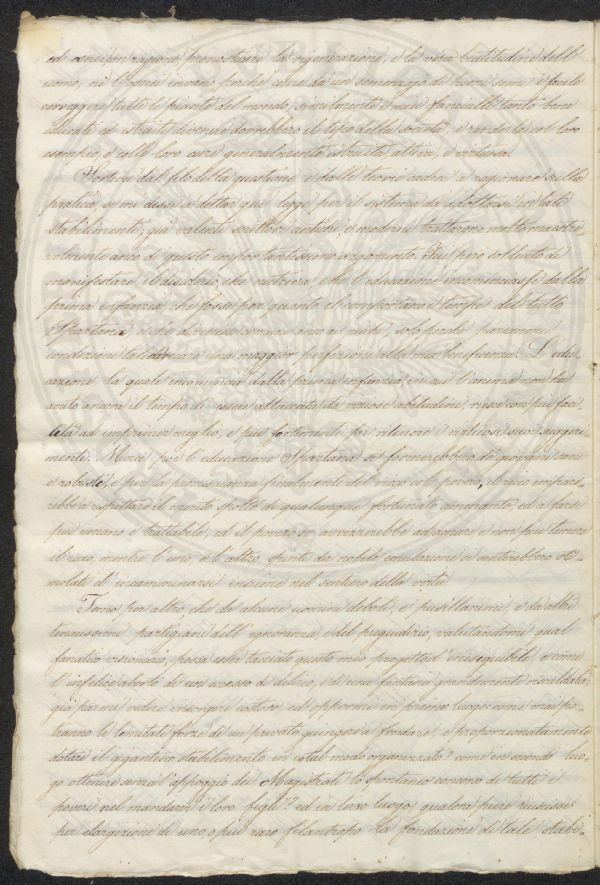 ed a ragione pronosticare la rigenerazione, e la vera beatitudine dell'
uomo, nè l'opera invano, perchè come da un semenzajo di buoni semi è facile
correggere tutte le piante del mondo, similmente i miei fanciulli tanto bene
educati ed istruiti divenir dovrebbero il tipo della società, e renderla col loro
esempio, e colle loro cure generalmente istruita, attiva, e virtuosa.
Tortire dal filo della quistione, e dalle teorie cadrei a ragionare sulla
pratica, se mi dassi a dettar qui leggi per il sistema da adottarsi in tali
stabilimenti, già valenti scrittori antichi, e moderni trattarono molto maestre-
volmente di questo importantissimo argomento. Fui però sollecito di
manifestare il desiderio, che nutriva, che l'educazione incominciasse dalla
prima infanzia, che fosse per quanto il comportano i tempi del tutto
Spartana, e che si rendesse comune anco ai ricchi, solo perchè pareanmi
condizioni tali da recare una maggior perfezione alla mia beneficenza. L'edu-
cazione la quale incomincia dalla prima infanzia, in cui l'anima non ha
avuto ancora il tempo di esser allacciata da viziose abitudini, riesce con più faci-
lità ad imprimer meglio, e più fortemente far ritenere i validi suoi suggeri-
menti. Mercè poi l'educazione Spartana si formerebbero de' giovani sani
e robusti, e per la promiscuanza finalmente del ricco col povero, il ricco impare-
rebbe a rispettare il merito spoglio di qualunque fortunato ornamento, ed a farsi
più umano, e trattabile, ed il povero si avvezzerebbe ad amare, e non più temere
il ricco, mentre l'uno, e l'altro spinti da nobile emulazione si sentirebbero sti-
molati d'incamminarsi insieme nel sentiero della virtù.
Temo, per altro, che da alcuni uomini deboli, e pusillanimi, e da altri
tenacissimi partigiani dell'ignoranza, e del pregiudizio, valutandomi qual
fanatico visionario, possa esser tacciato questo mio progetto d'ineseguibile, e come
l'infelice aborto di un accesso di delirio, e di una fantasia grandemente riscaldata;
già parmi vedere insorgere costoro, ed oppormi in primo luogo: come mai po-
tranno le limitate forze di un privato giungere a fondare, e proporzionatamente
dotare il gigantesco stabilimento in cotal modo organizzato? come in secondo luo-
go ottenere senza l'appoggio dei Magistrati lo spontaneo concorso di tutti i
poveri nel mandarvi i loro figli? ed in terzo luogo, qualora pure riuscisse
per elargizione di uno o più rari filantropi la fondazione di tale stabi-